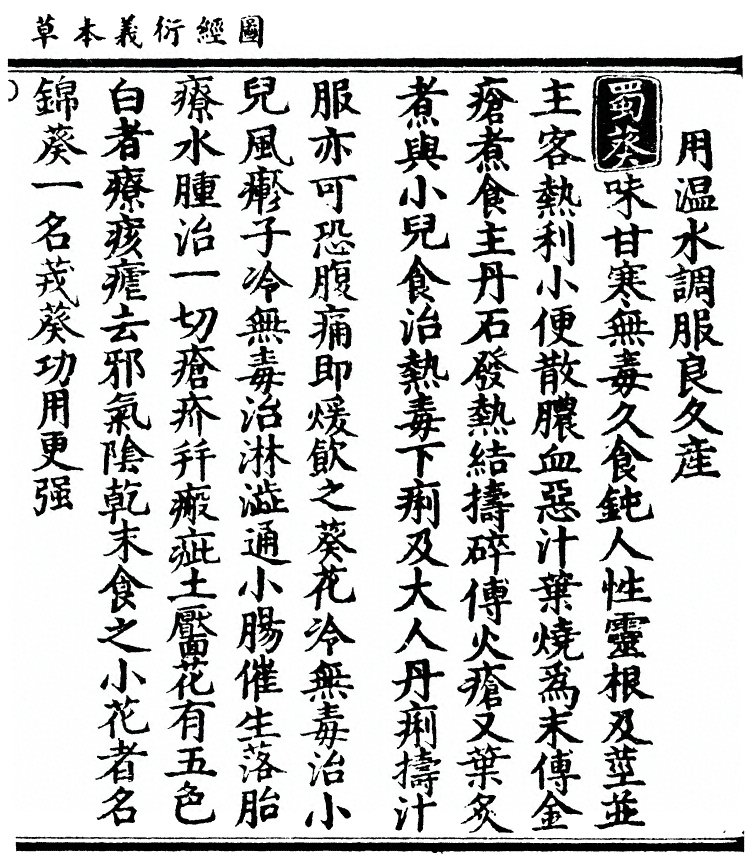 圖經衍義本草
用温水調服良久産
蜀葵味甘寒無毒久食鈍人性靈根及莖並
主客熱利小便散膿血惡汁葉燒為末傅金
瘡煮食主丹石發熱結擣碎傅火瘡又葉炙
煮與小兒食治熱毒下痢及大人丹痢擣汁
服亦可恐腹痛即煖飲之葵花冷無毒治小
兒風㿀子冷無毒治淋澁通小腸催生落胎
療水腫治一切瘡疥并瘢疵土靨花有五色
白者療痎瘧去邪氣陰乾末食之小花者名
錦葵一名茙葵功用更强